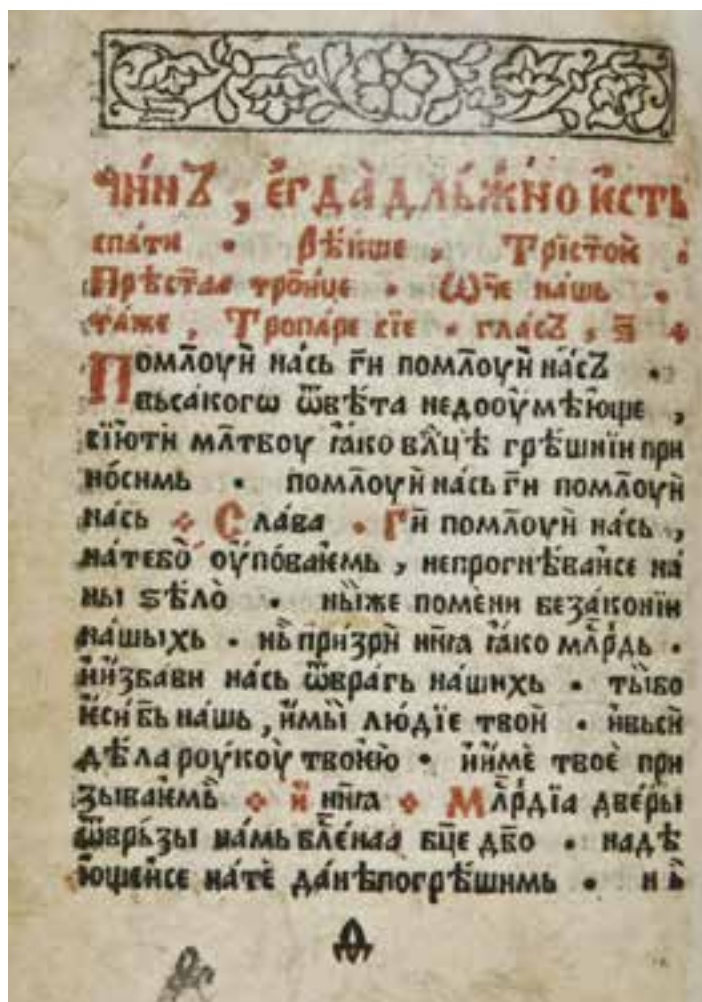 чи́нъ , є҆гда̀ длъ́жно ѥ҆сть
спа́ти • вѣ́кше , Трїст҃оѥ •
Прѣст҃аа тро́ице • Ѡ҆ч҃е на́шь •
та́же , Тропа́ре сїе • гла́съ , ѕ҃ •
Помл҃оуи̇̀ на́сь г҃и помл҃оуи̇̀ на́съ •
вьса́когѡ ѿвѣ́та недооу҆мѣ́юще ,
сїю́ти мл҃твоу ꙗ҆́ко вл҃цѣ грѣ́шнїи при
но́симь • помл҃оуи̇̀ на́сь г҃и помл҃оуи̇̀
на́сь Сла́ва • Г҃и помл҃оуи̇̀ на́сь ,
на́тебѡ̀ оу҆пова́ѥмь , непрогнѣ́ваисе на́
ны ѕѣлѡ̀ • ни́же помени безако́нїи
на́шыхь • нь̀ при́зри нн҃ꙗ ꙗ҆́ко млр҃дь •
и҆и҆зба́ви на́сь ѿвра́гь на́шихь • ты́бо
ѥ҆си̇̀ б҃ь на́шь , и҆мы̀ лю́дїе твои̇̀ • и҆вьси̇̀
дѣ́ла роу́коу̀ твоѥ́ю • и҆и҆мѐ твоѐ при
зыва́ѥмь и҆ нн҃ꙗ Млр҃дїа две́ры
ѿврь́зы на́мь бл҃е́наа бц҃е дв҃о • надѣ́
ющеи̇̀се на́тѐ да́нѣпогрѣ́шимь • нь̀